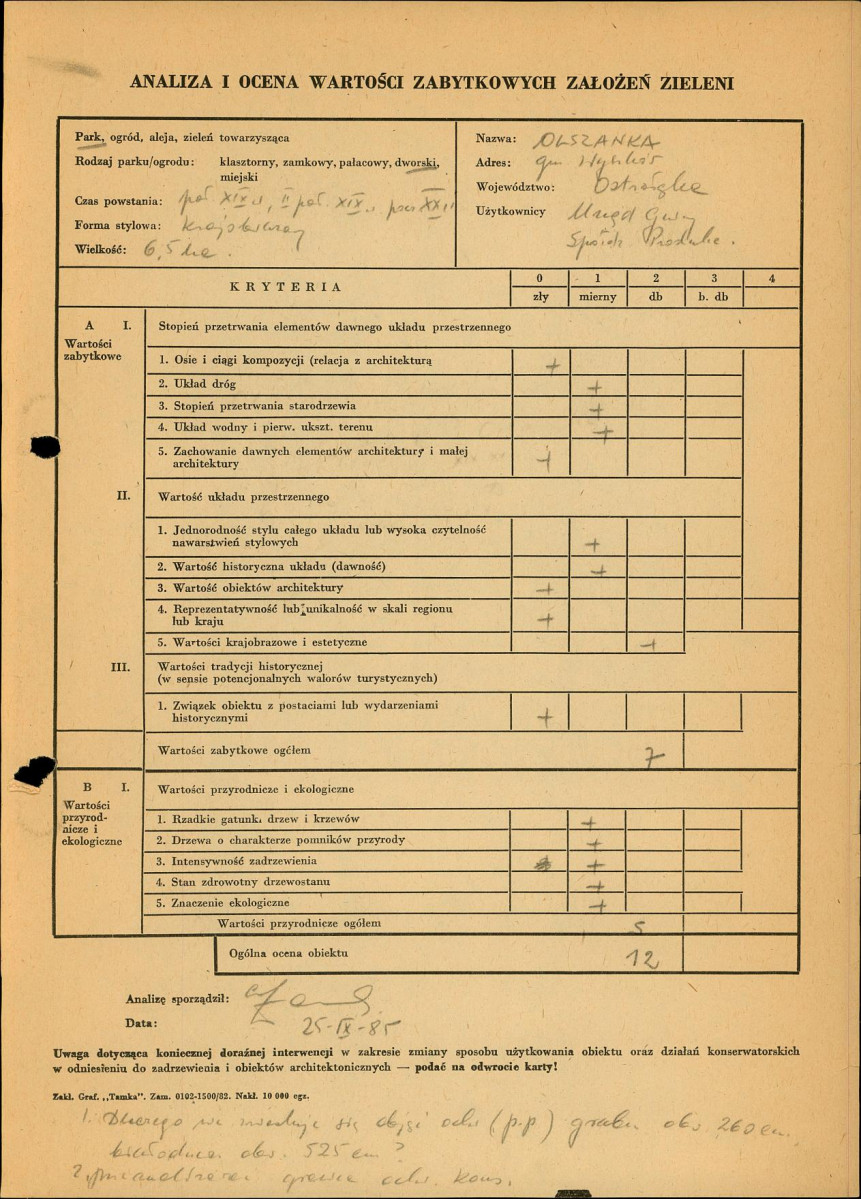 ANALIZA I OCENA WARTOŚCI ZABYTKOWYCH ZAŁOŻEŃ ZIELENI
Park, ogród, aleja, zieleń towarzysząca
Rodzaj parku/ogrodu: klasztorny, zamkowy, pałacowy, dworski,
miejski
Czas powstania: poł. XIX w, II poł. XIX w, XX
Forma stylowa: krajobrazowy
Wielkość: 6,5 ha.
Nazwa: OLSZANKA
Adres: gm
Województwo: Ostrołęka
Użytkownicy Urząd Gminy
Spółdz. Produkc.
KRYTERIA 0 1 2 3 4
zły mierny db b. db
A I. Stopień przetrwania elementów dawnego układu przestrzennego
Wartości
zabytkowe
1. Osie i ciągi kompozycji (relacja z architekturą +
2. Układ dróg +
3. Stopień przetrwania starodrzewia +
4. Układ wodny i pierw. ukszt. terenu +
5. Zachowanie dawnych elementów architektury i małej
architektury +
II. Wartość układu przestrzennego
1. Jednorodność stylu całego układu lub wysoka czytelność
nawarstwień stylowych +
2. Wartość historyczna układu (dawność) +
3. Wartość obiektów architektury +
4. Reprezentatywność lub unikalność w skali regionu
lub kraju +
5. Wartości krajobrazowe i estetyczne +
III. Wartości tradycji historycznej
(w sensie potencjonalnych walorów turystycznych)
1. Związek obiektu z postaciami lub wydarzeniami
historycznymi +
Wartości zabytkowe ogółem 7
B I. Wartości przyrodnicze i ekologiczne
Wartości
przyrod-
nicze i
ekologiczne
1. Rzadkie gatunki drzew i krzewów +
2. Drzewa o charakterze pomników przyrody +
3. Intensywność zadrzewienia +
4. Stan zdrowotny drzewostanu +
5. Znaczenie ekologiczne +
Wartości przyrodnicze ogółem 5
Ogólna ocena obiektu 12
Analizę sporządził:
Data: 25-IX-85
Uwaga dotycząca koniecznej doraźnej interwencji w zakresie zmiany sposobu użytkowania obiektu oraz działań konserwatorskich
w odniesieniu do zadrzewienia i obiektów architektonicznych — podać na odwrocie karty!
Zakł. Graf. „Tamka". Zam. 0102-1500/82. Nakł. 10 000 egz.
1. Dlaczego nie się (p.p) grabu obw. 260 cm,
obw. 525 cm?
2. granica kons.